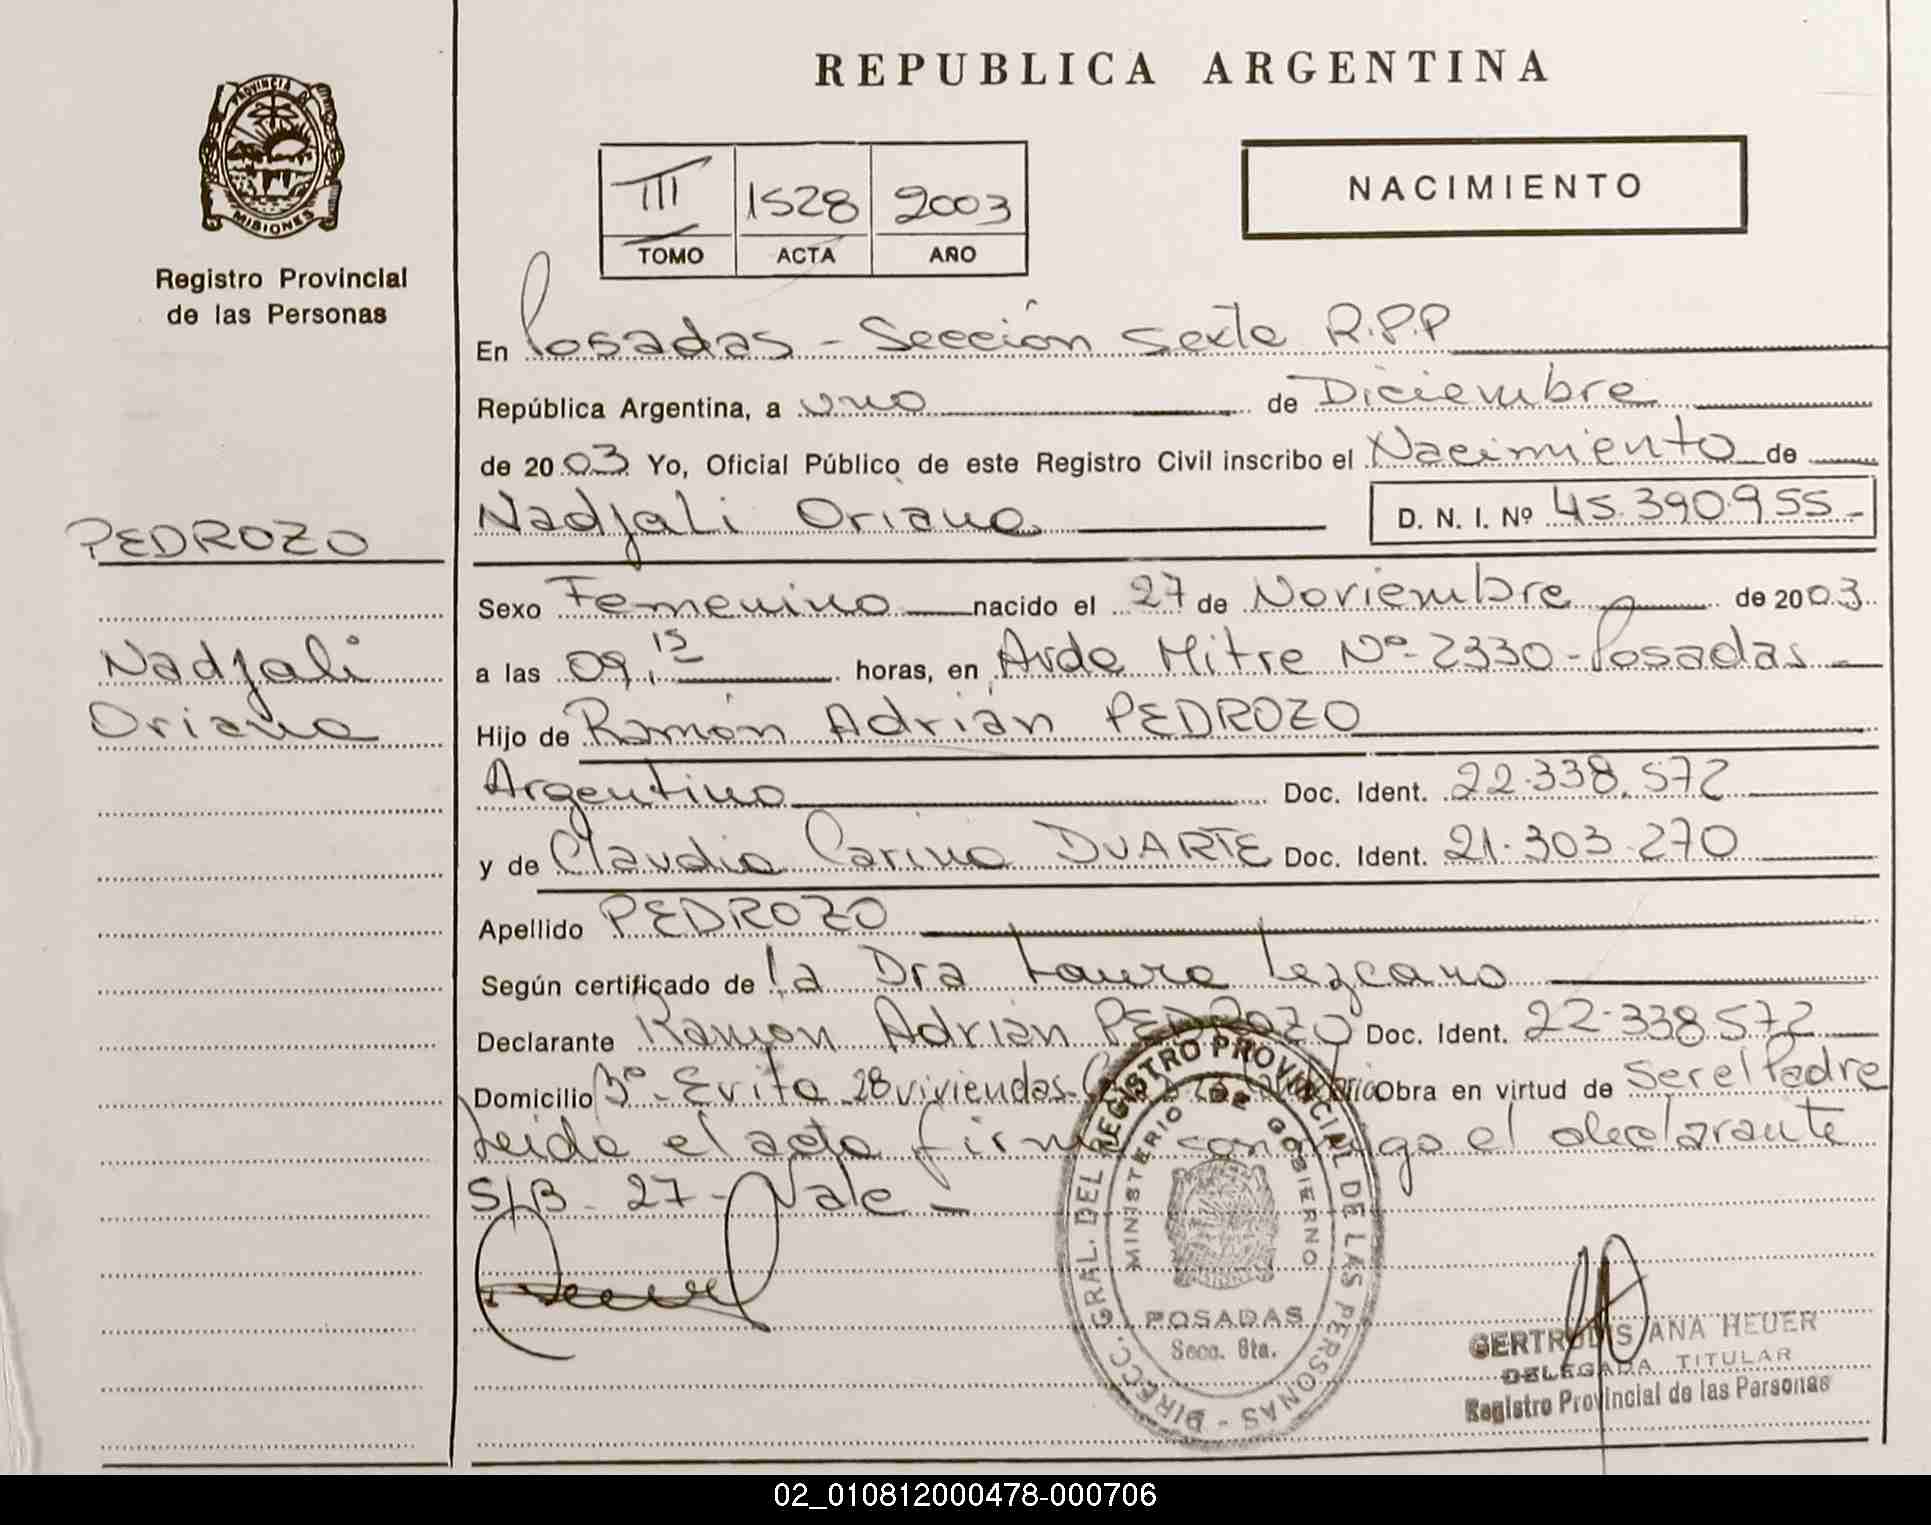 PROVINCIA D
MISIONES
Registro Provincial
de las Personas
REPUBLICA ARGENTINA
III 1528 2003
TOMO ACTA AÑO
NACIMIENTO
En Posadas - Sección Sexta R.P.P
República Argentina, a uno de Diciembre
de 2003 Yo, Oficial Público de este Registro Civil inscribo el Nacimiento de
Nadjali Oriana D. N. I. Nº 45.390.955-
PEDROZO
Nadjali
Oriana
Sexo Femenino nacido el 27 de Noviembre de 2003
a las 09,15 horas, en Avda Mitre Nº 2330 - Posadas -
Hijo de Ramón Adrián PEDROZO
Argentino Doc. Ident. 22.338.572
y de Claudia Carina DUARTE Doc. Ident. 21.303.270
Apellido PEDROZO
Según certificado de la Dra Laura Lezcano
Declarante Ramón Adrián PEDROZO Doc. Ident. 22.338.572
Domicilio Bº Evita 28 viviendas Obra en virtud de Ser el Padre
Leida el acta firma conmigo el declarante
S/B - 27 - Vale -
DIRECC. GRAL. DEL REGISTRO PROVINCIAL DE LAS PERSONAS -
MINISTERIO DE GOBIERNO
POSADAS
Secc. 6ta.
GERTRUDIS ANA HEUER
DELEGADA TITULAR
Registro Provincial de las Personas
02_010812000478-000706